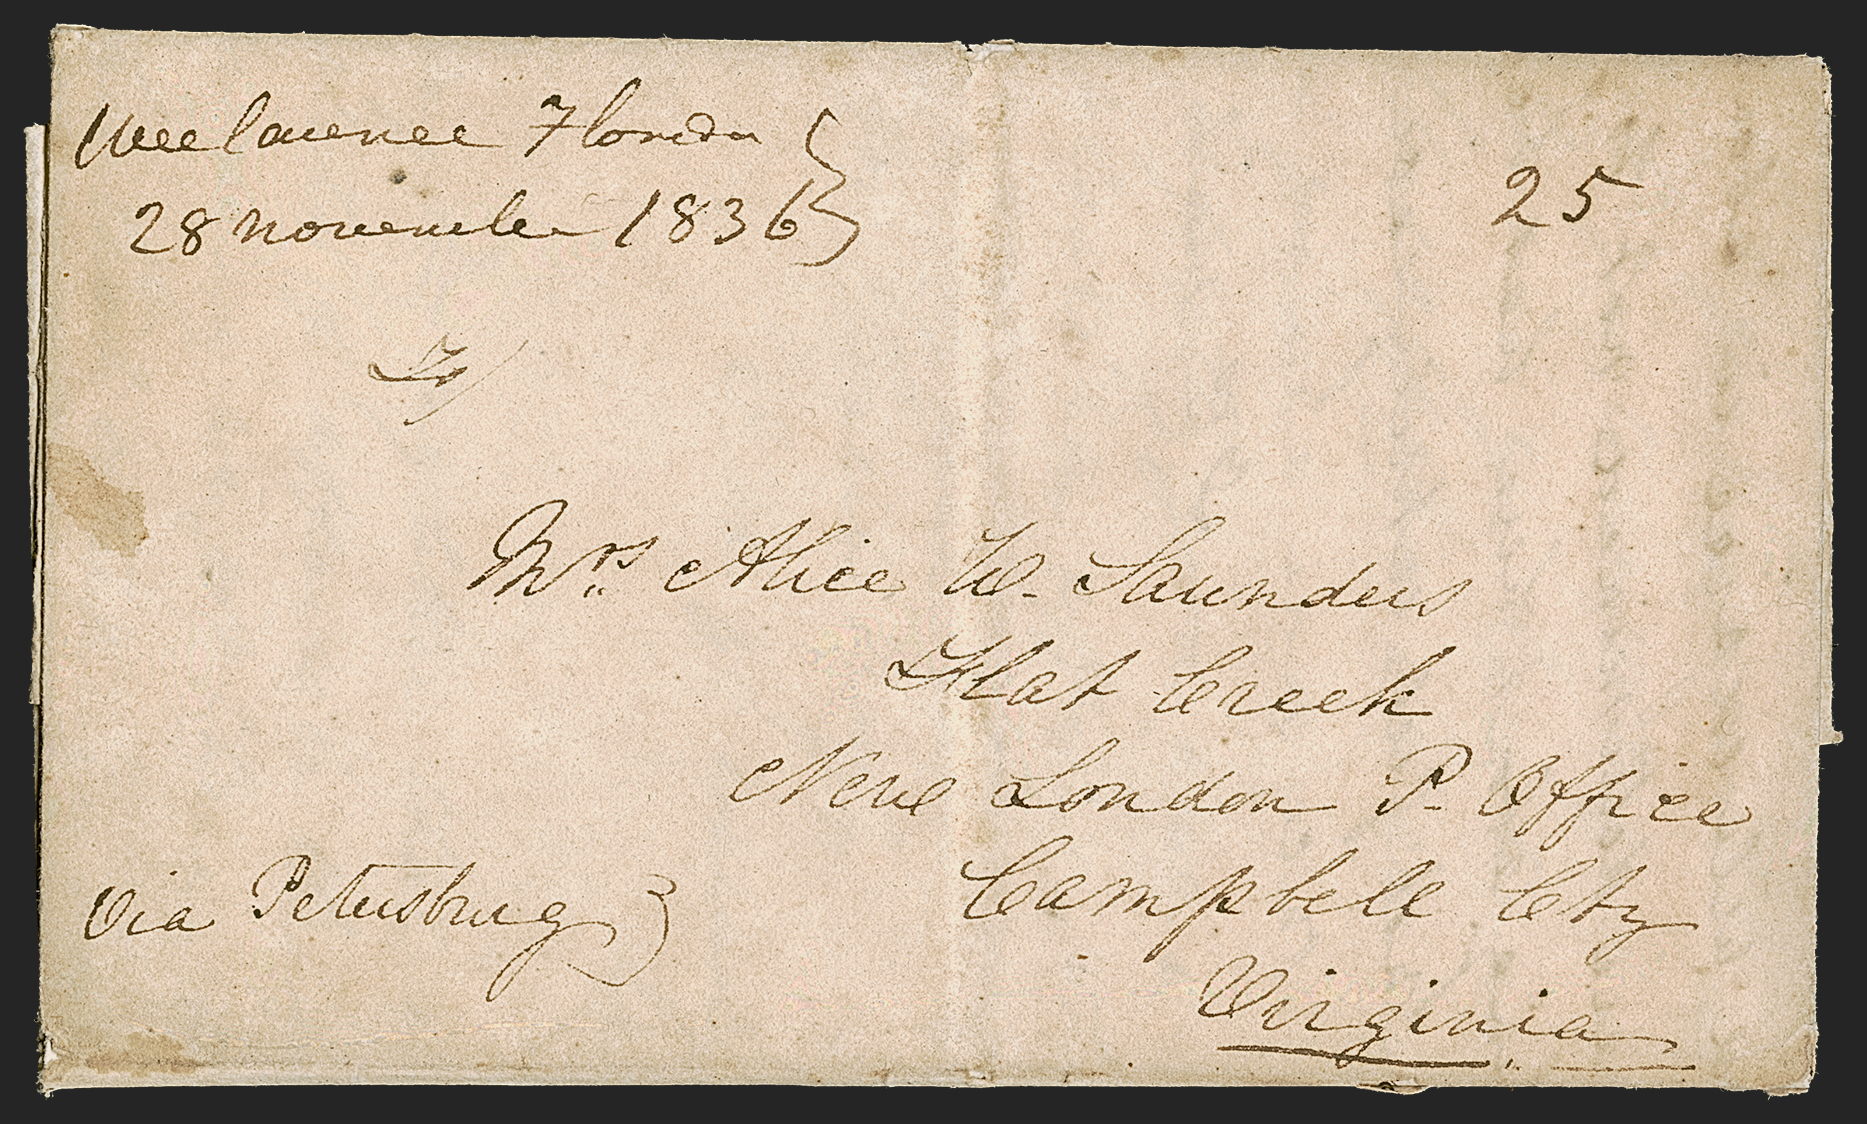 Weelaunee Florida
28 november 1836
25
To/
Mrs. Alice W. Saunders
Flat Creek
New London P. Office
Campbell Cty
Via Petersburg
Virginia